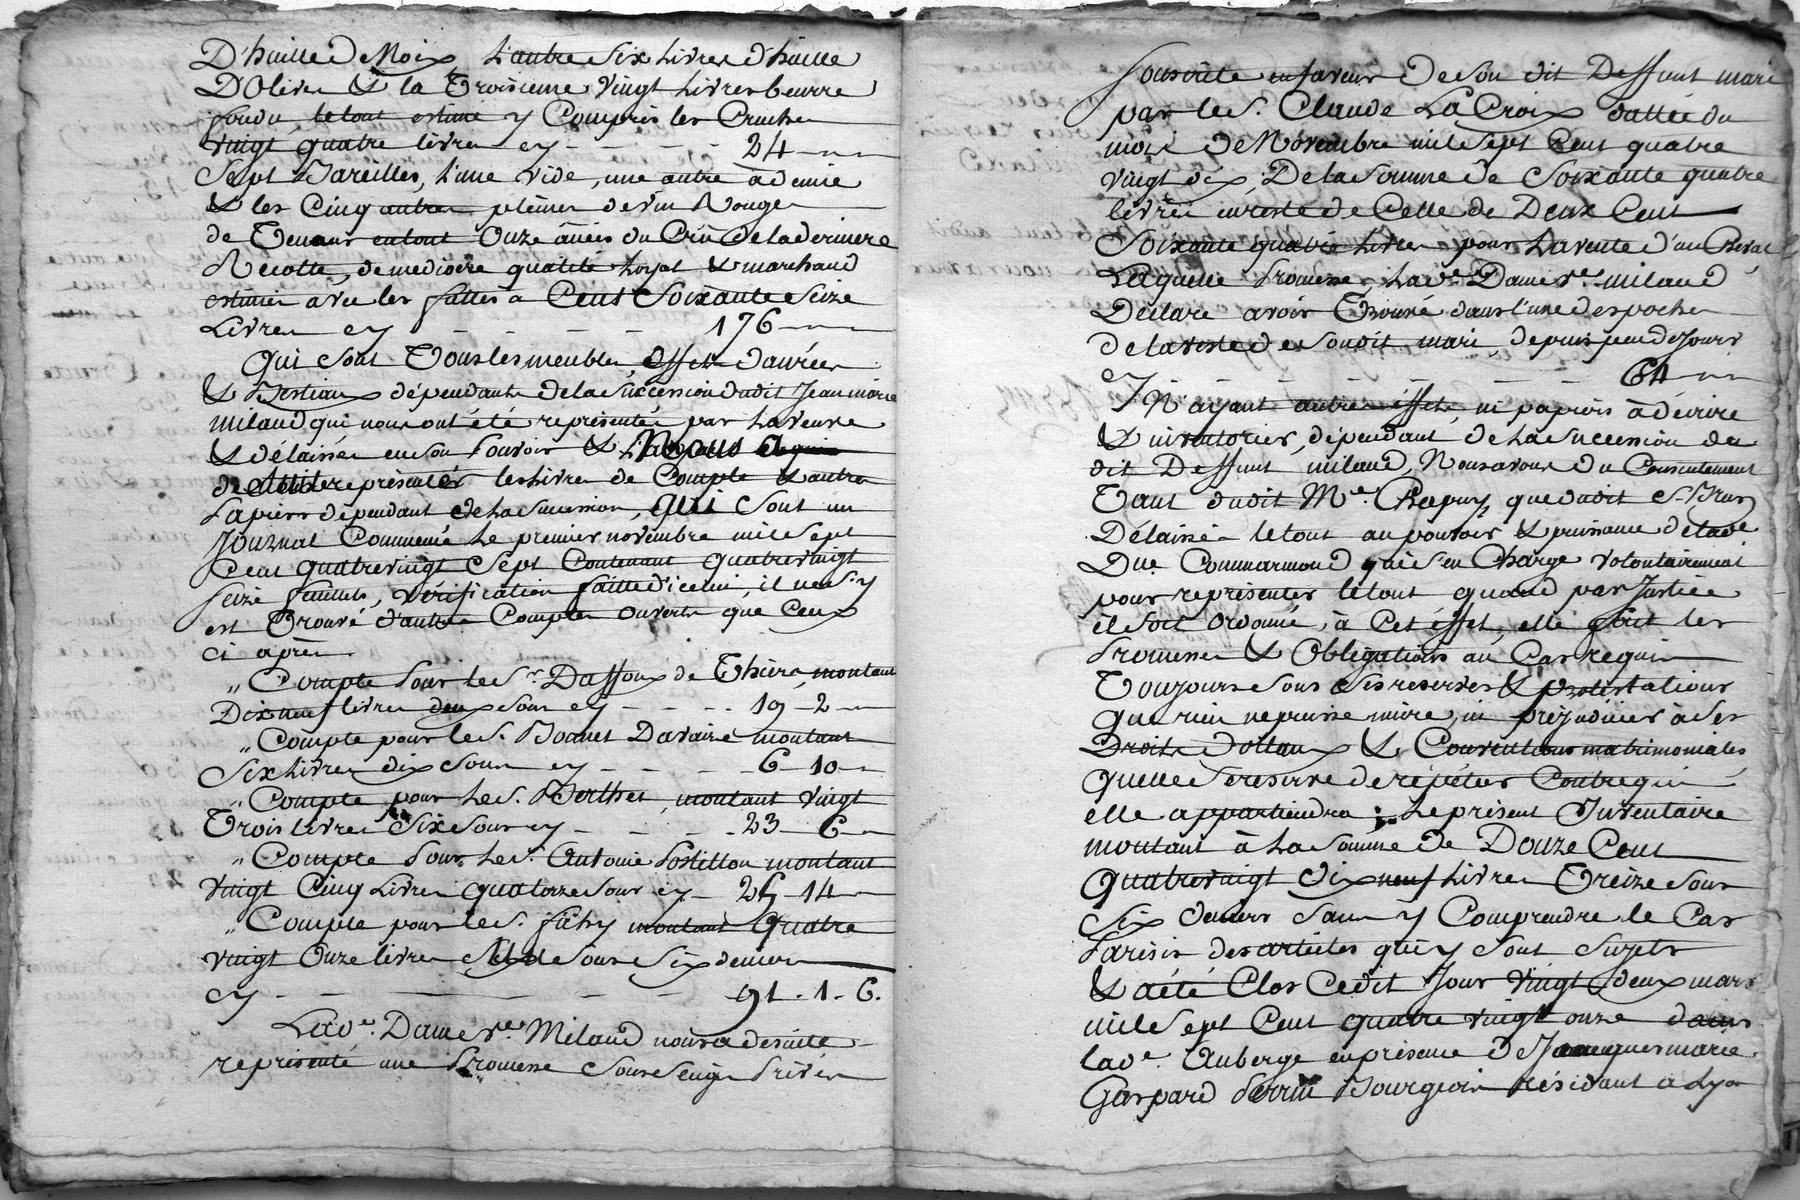 D'huille de Noix, L'autre Six Livres d'huille
D'Olives & la Troisieme Vingt Livres beurre
fondu le tout estimé y Compris les Cruches
vingt quatre livres cy - - - - - 24
Sept Bareilles, l'une vide, une autre à demie
& les Cinq autres pleines de vin Rouge
de Tenans en tout Onze anées du Crû de la derniere
Recolte, de mediocre qualité Loyal & marchand
estimées avec les futtes à Cent Soixante Seize
Livres cy - - - - - 176
Qui sont Tous les meubles, effets danrées
& Bestiaux dépendants de la succession dudit Jean marie
milaud qui nous ont été representés par la veuve
& délaissés en son Pouvoir & Nous a
de representer les Livres de Compte & autres
Papiers dépendant de la Succession, qui sont un
Journal Commencé le premier novembre mil sept
Cent quatrevingt Sept Contenant quatrevingt
seize feuillets, vérification faitte d'icelui, il ne s'y
est Trouvé d'autres Comptes ouverts que Ceux
ci après
" Compte pour le Sr. Daffoux de Thiers, montant
Dix neuf livres deux sous cy - - - - 19 - 2
" Compte pour le S. Bonnet Davaizé montant
Six livres dix sous cy - - - - 6 - 10
" Compte pour le S. Berthet, montant vingt
Trois livres Six sous cy - - - - 23 - 6
" Compte pour le S. Antoine Postillon montant
vingt Cinq Livres quatorze sous cy - 25 - 14
" Compte pour le S. fichy montant Quatre
vingt Onze livres sous Six deniers
cy - - - - - 91 - 1 - 6.
Lade. Dame Ve. Milaud nous a de suite
representé une Promesse Sous Seing Privés
Souscrite en faveur de son dit Deffunt mari
par le S. Claude La Croix dattée du
mois de Novembre mil Sept Cent quatre
vingt dix, De la Somme de Soixante quatre
livres en reste de Celle de Deux Cent
Soixante quatre livres pour la vente d'un Cheval
Laquelle Promesse, lade. Dame Ve. milaud
Declare avoir Trouvé dans l'une des poches
de la veste de Soudit mari, depuis peu de Jours
cy - - - - - 64
N'ayant autres effets, ni papiers à décrire
& inventorier, dépendant de la Succession du
dit Deffunt milaud, Nous avons du Consentement
Tant dudit Me. Chapuy, que dudit S. Brun
Délaissé le tout au pouvoir & puissance de lade
Due. Commarmond qui s'en Charge volontairement
pour representer le tout quand par Justice
il Soit Ordonné, à Cet effet, elle fait les
Promesses & Obligations au Cas requis
Toujours Sous Ses reserves & protestations
que rien ne puisse nuire, ni préjudicier à Ses
Droits dottaux & Conventions matrimoniales
quelle se reserve de répéter Contre qui
elle appartiendra ; Le présent Inventaire
montant à la Somme de Douze Cent
Quatrevingt dix neuf Livres Treize Sous
Six deniers Sans y Comprendre le Cas
Parisis des articles qui y sont Sujets
& a été Clos Cedit Jour vingt deux mars
mil Sept Cent quatre vingt onze dans
lade. Auberge en présence de Jacques marie
Gaspard Perrin Bourgeois résidant à Lyon